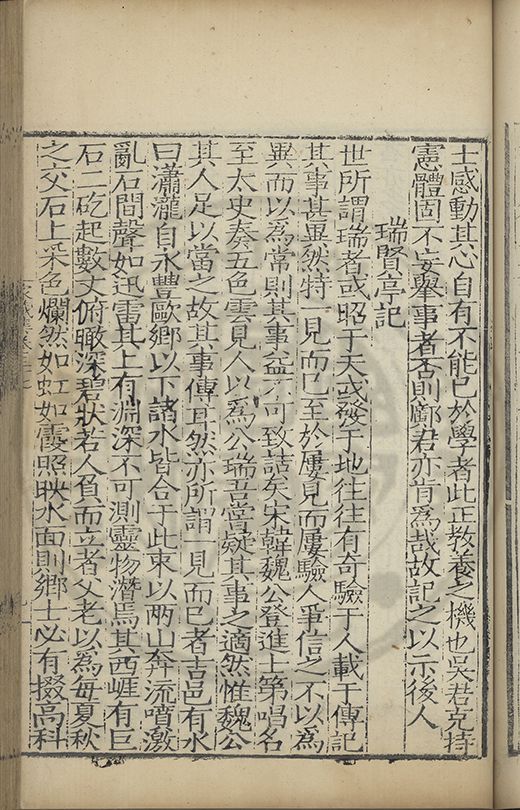 士感動其心自有不能已於學者此正教養之機也吳君克持
憲體固不妄舉事者否則鄺君亦肯為哉故記之以示後人
瑞賢亭記
世所謂瑞者或昭于天或發于地往往有奇驗于人載于傳記
其事甚異然特一見而已至於屢見而屢驗人爭信之不以為
異而以為常則其事益不可致詰矣宋韓魏公登進士第唱名
至太史奏五色雲見人以為公瑞吾嘗疑其事之適然惟魏公
其人足以當之故其事傳耳然亦所謂一見而已者吉邑有水
曰瀟瀧自永豐歐鄉以下諸水皆合于此東以兩山奔流噴激
亂石間聲如迅雷其上有淵深不可測靈物潛焉其西崕有巨
石二矻起數丈俯瞰深碧狀若人負而立者父老以為每夏秋
之交石上采色爛然如虹如霞照映水面則鄉士必有掇高科